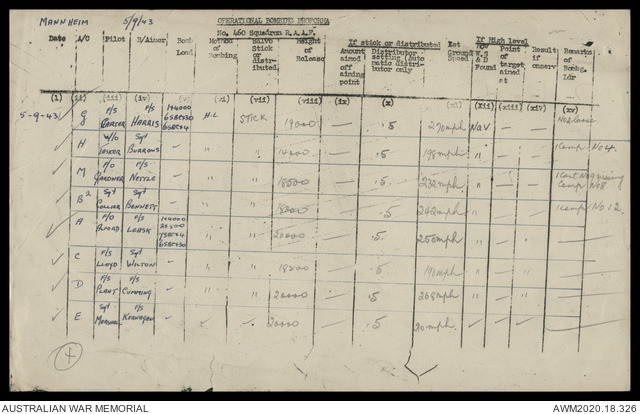 MANNHEIM 5/9/43 OPERATIONAL BOMBING PROFORMA
No. 460 Squadron R.A.A.F.
Date A/C Pilot B/Aimer Bomb Load. Method of Bombing Salvo Stick or distributed. Height of Release If stick or distributed Amount aimed off aiming point Distributor setting (Auto ratio distributor only Est Ground Speed If High level How W.S & D Found Point of target aimed at Result if observ Remarks of Bombg. Ldr
(i) (ii) (iii) (iv) (v) (vi) (vii) (viii) (ix) (x) (xi) (xii) (xiii) (xiv) (xv)
5-9-43 G F/S CARTER F/S HARRIS 1X4000 H.L STICK 19000 — .5 270mph NAV — —
H W/O Sgt BURROWS " " — .5 " — — 1 Comp No 4.
M F/O GARDNER F/S NETTLE " " 18500 — .5 232mph " — —
B² Sgt COLLIER Sgt BENNETT " " — .5 242mph " — —
A F/O F/S LEASK 1X4000 " " 20000 .5 250mph " — —
C F/S LLOYD Sgt WILTON " " 18200 — .5 190mph " — —
D F/S PLANT F/S CUMMING " " 20000 — .5 208mph " — —
E Sgt F/S 20000 — .5
4
AUSTRALIAN WAR MEMORIAL AWM2020.18.326